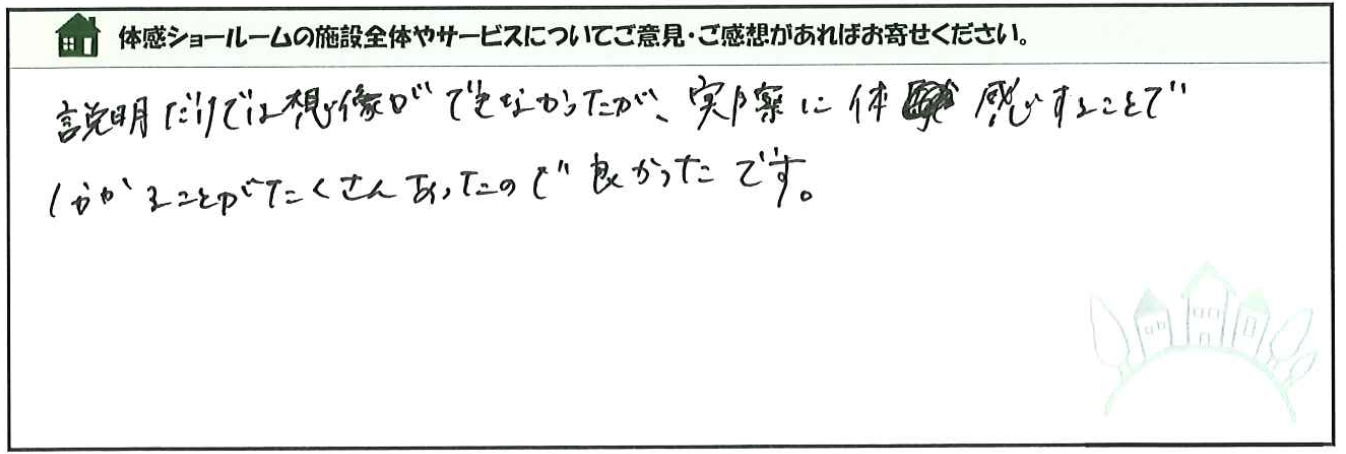 体感ショールームの施設全体やサービスについてご意見・ご感想があればお寄せください。
説明だけでは想像ができなかったが、実際に体感することで
分かることがたくさんあったので良かったです。